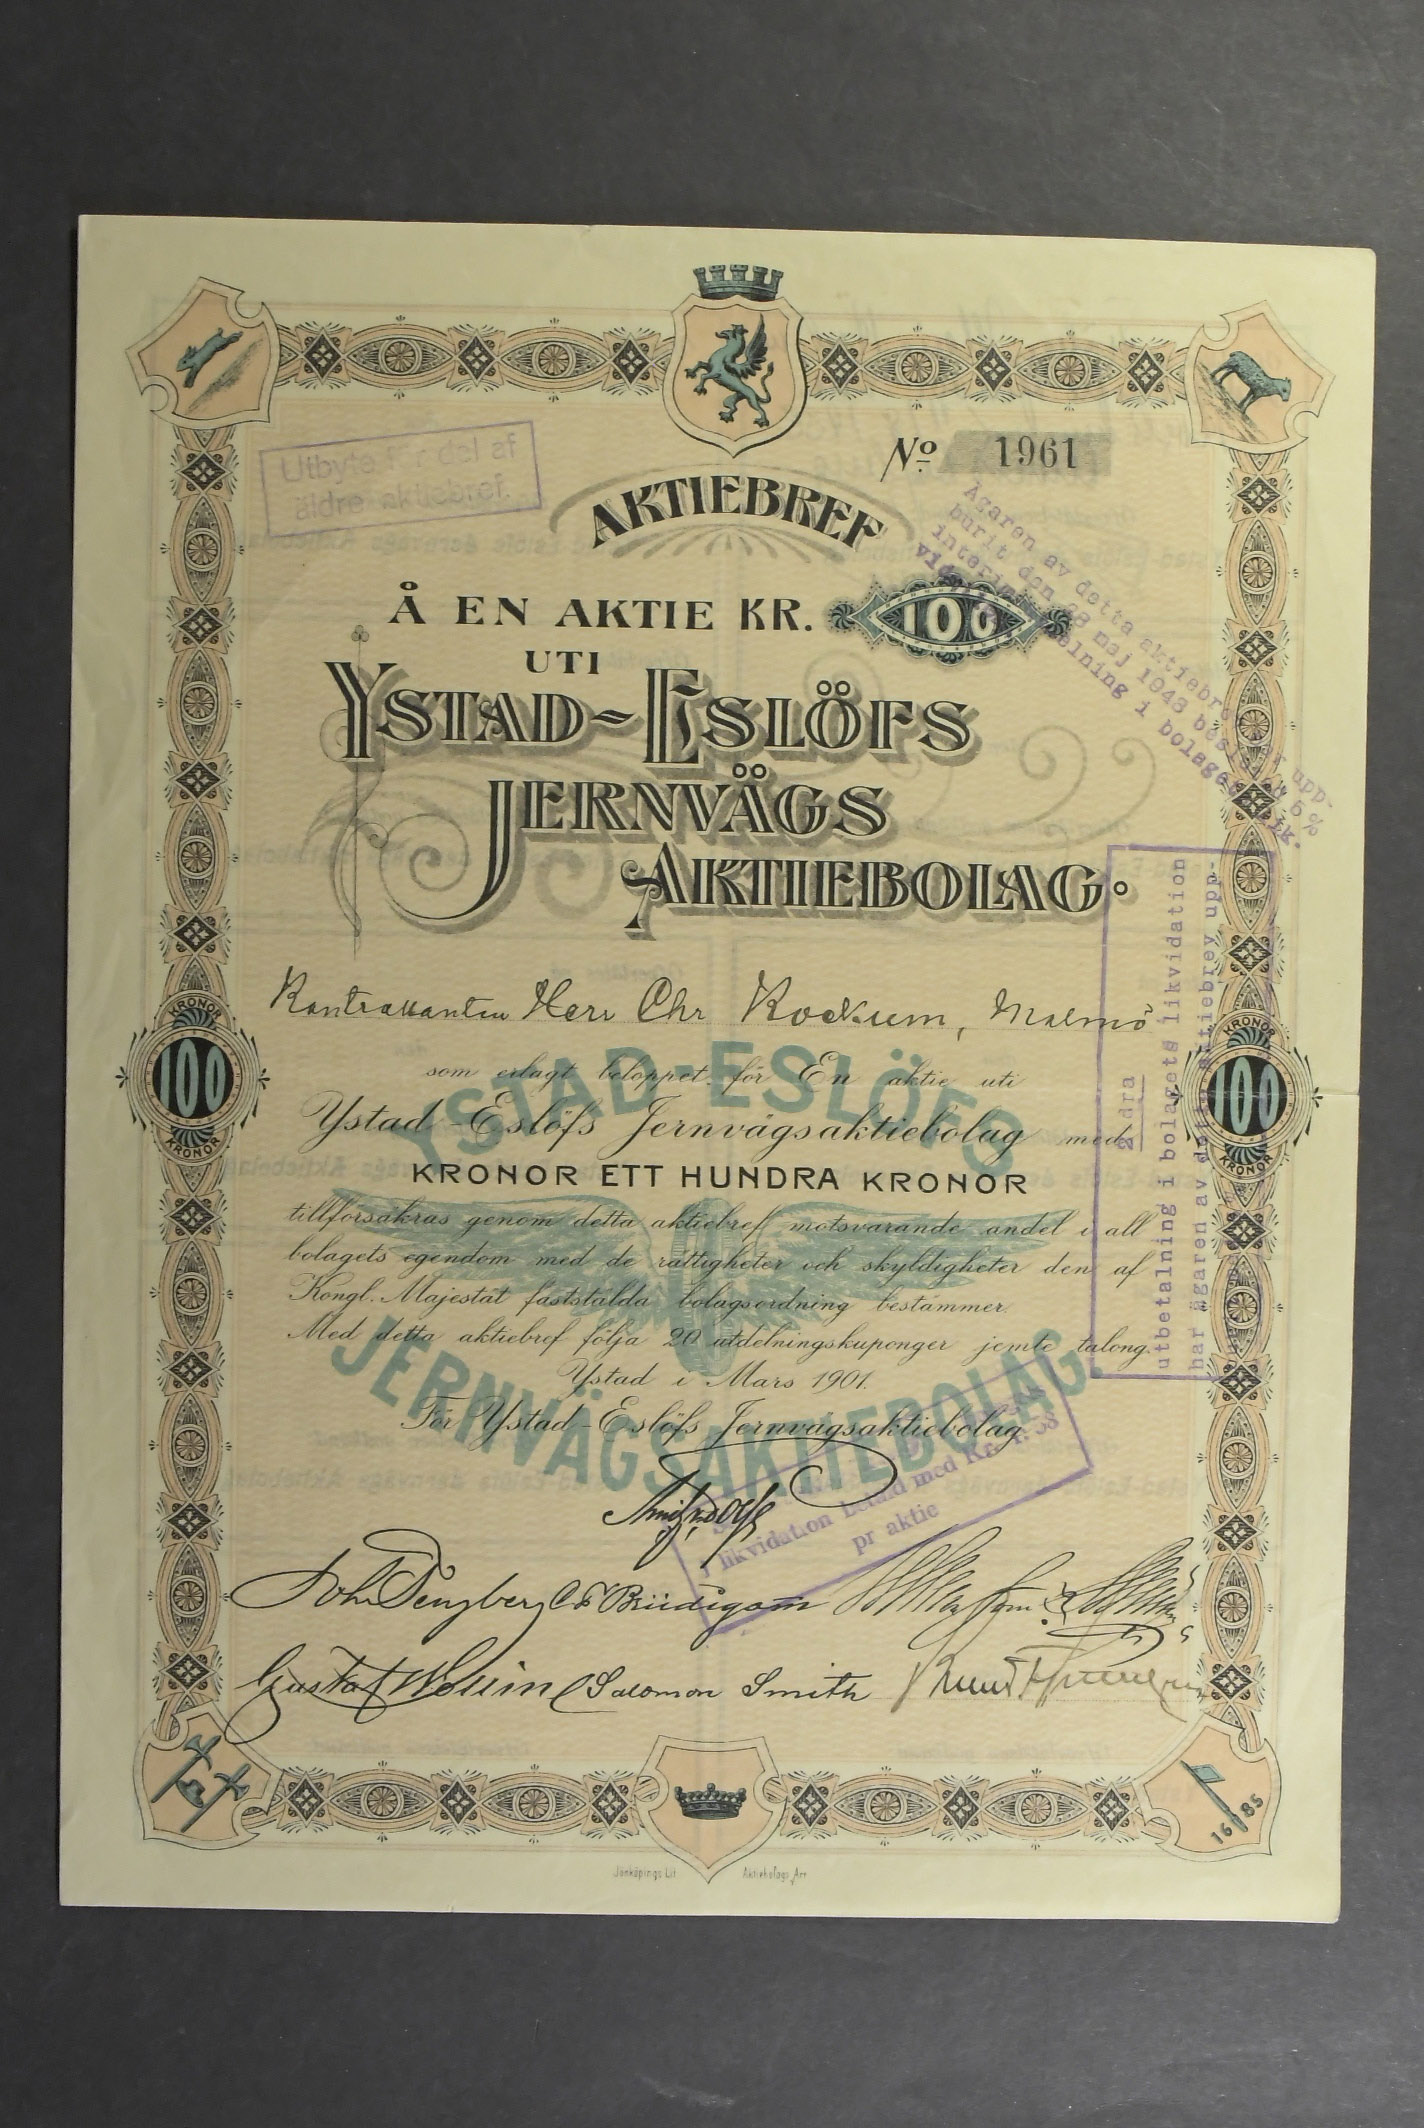 No 1961
Utbyte för del af
äldre aktiebref.
AKTIEBREF
Å EN AKTIE KR. 100
UTI
YSTAD-ESLÖFS
JERNVÄGS
AKTIEBOLAG.
Ägaren av detta aktiebrev
burit den 28 maj 1943 upp-
5%
i bolagets
Herr Chr Kockum, Malmö
som erlagt beloppet för En aktie uti
Ystad-Eslöfs Jernvägsaktiebolag med
KRONOR ETT HUNDRA KRONOR
tillförsäkras genom detta aktiebref motsvarande andel i all
bolagets egendom med de rättigheter och skyldigheter den af
Kongl. Majestät fastställda bolagsordning bestämmer.
Med detta aktiebref följa 20 utdelningskuponger jemte talong.
Ystad i Mars 1901.
För Ystad-Eslöfs Jernvägsaktiebolag
YSTAD-ESLÖFS
JERNVÄGSAKTIEBOLAG
KRONOR
100
KRONOR
KRONOR
100
KRONOR
har ägaren av detta aktiebrev upp-
utbetalning i bolagets likvidation
2 dra
likvidation betald med Kr.
pr aktie
Gustaf Wollin Salomon Smith
1685
Jönköpings Lit. Aktiebolags Arr.